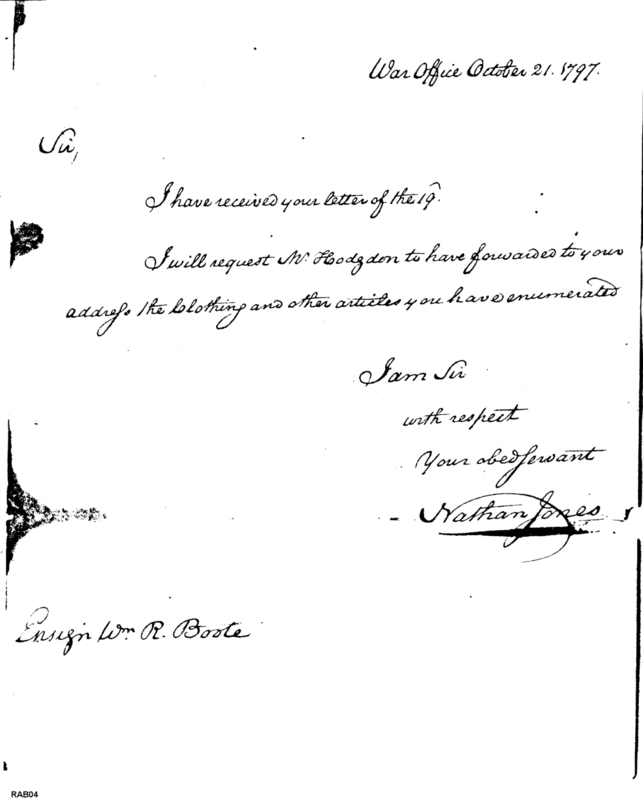 War Office October 21. 1797.
Sir,
I have received your letter of the 19th.
I will request Mr. Hodgdon to have forwarded to your
address the Clothing and other articles you have enumerated
I am Sir
with respect
Your obed servant
Nathan Jones
Ensign Wm R. Boote
RAB04